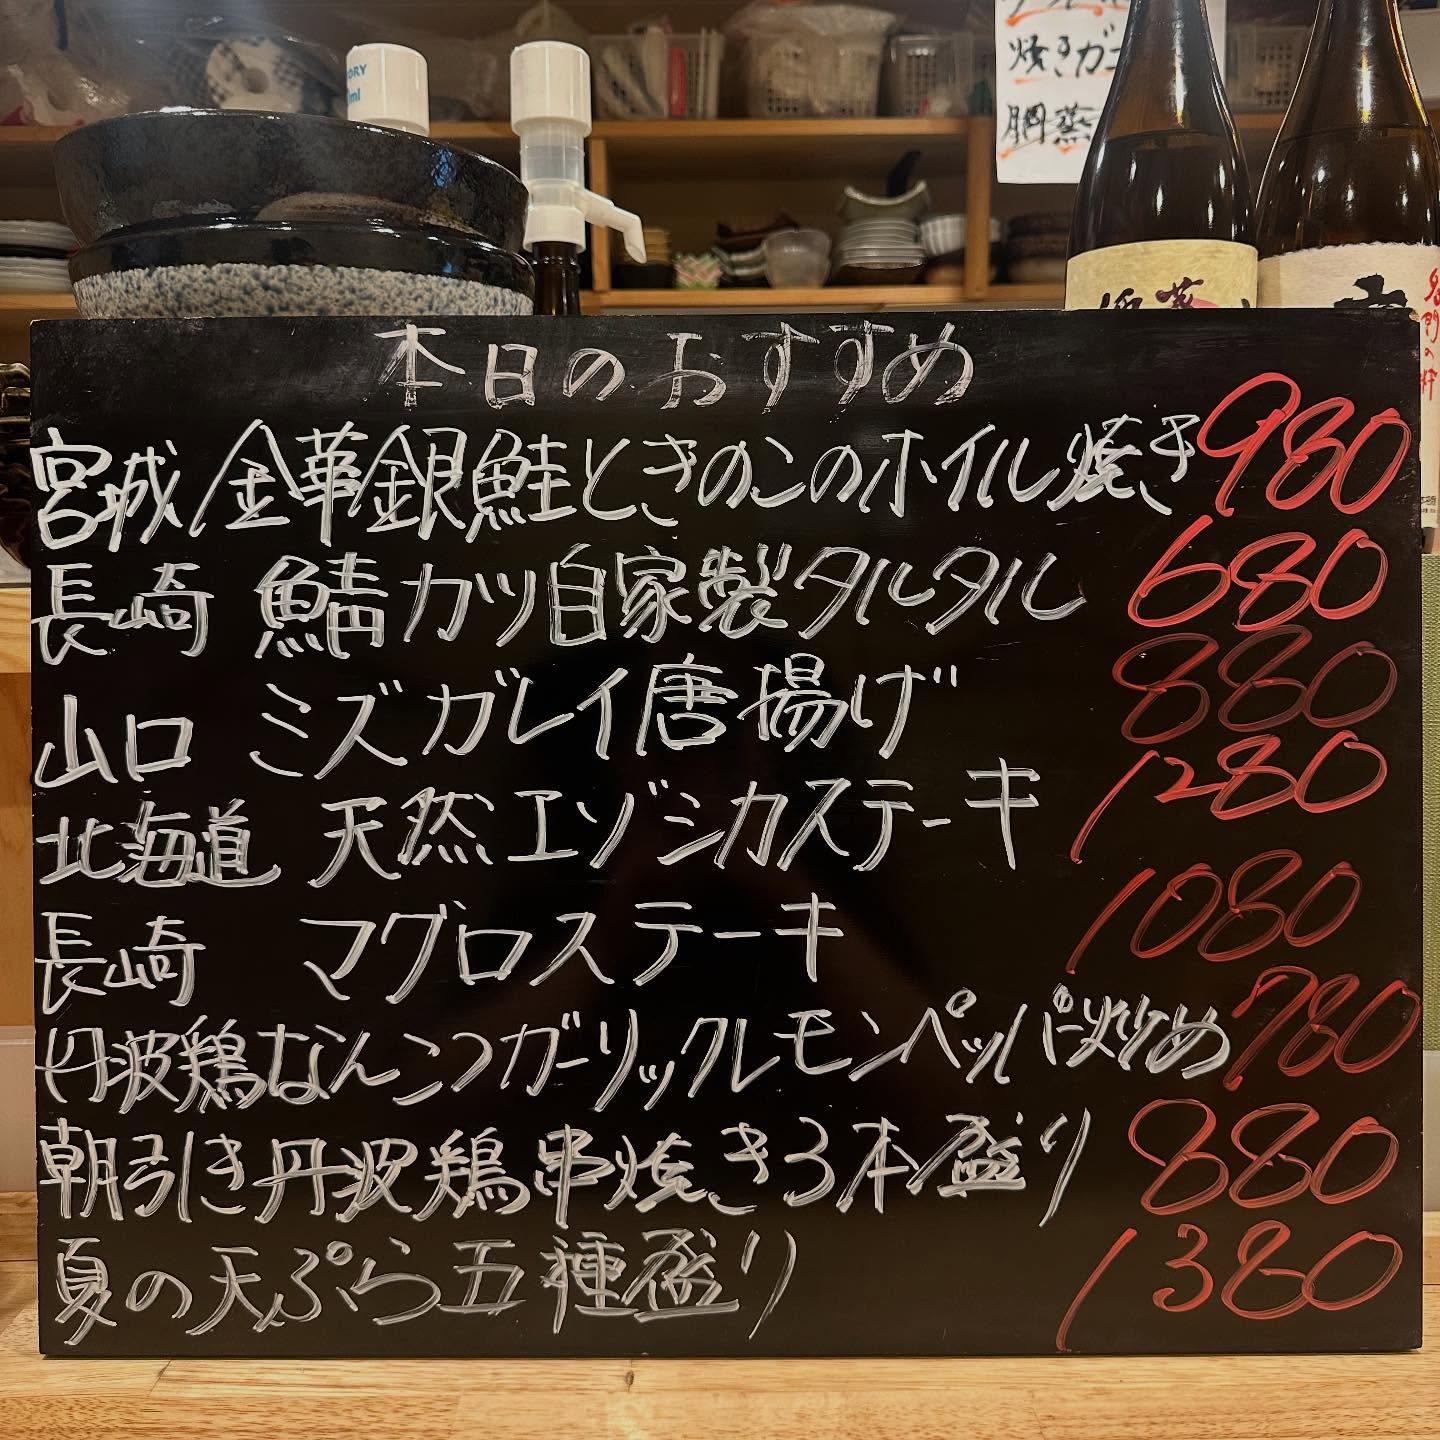 ORY
ml
焼きガ
胴蒸
名門の
本日のおすすめ
宮城 金華銀鮭ときのこのホイル焼き 980
長崎 鯖カツ自家製タルタル 680
山口 ミズガレイ唐揚げ 880
北海道 天然エゾシカステーキ 1280
長崎 マグロステーキ 1080
丹波鶏なんこつガーリックレモンペッパー炒め 780
朝引き丹波鶏串焼き3本盛り 880
夏の天ぷら五種盛り 1380